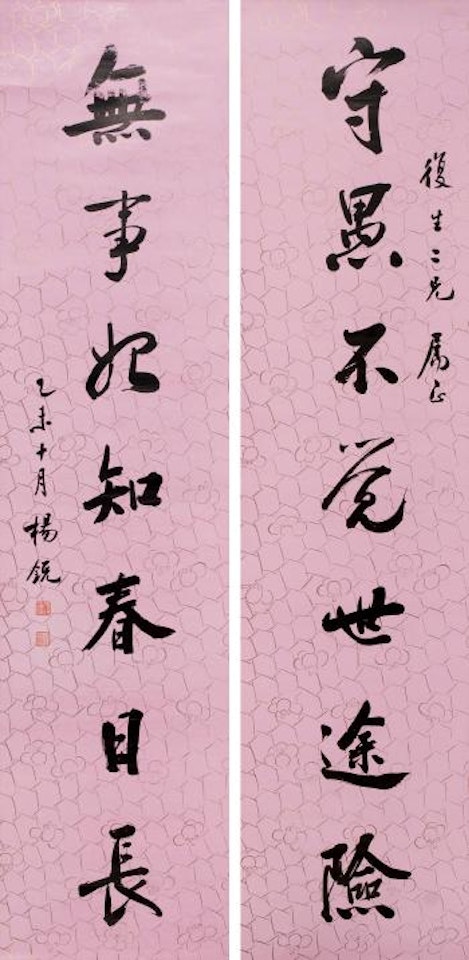 復生二兄 属正
守愚不觉世途險
無事始知春日長
乙未十月 楊銳